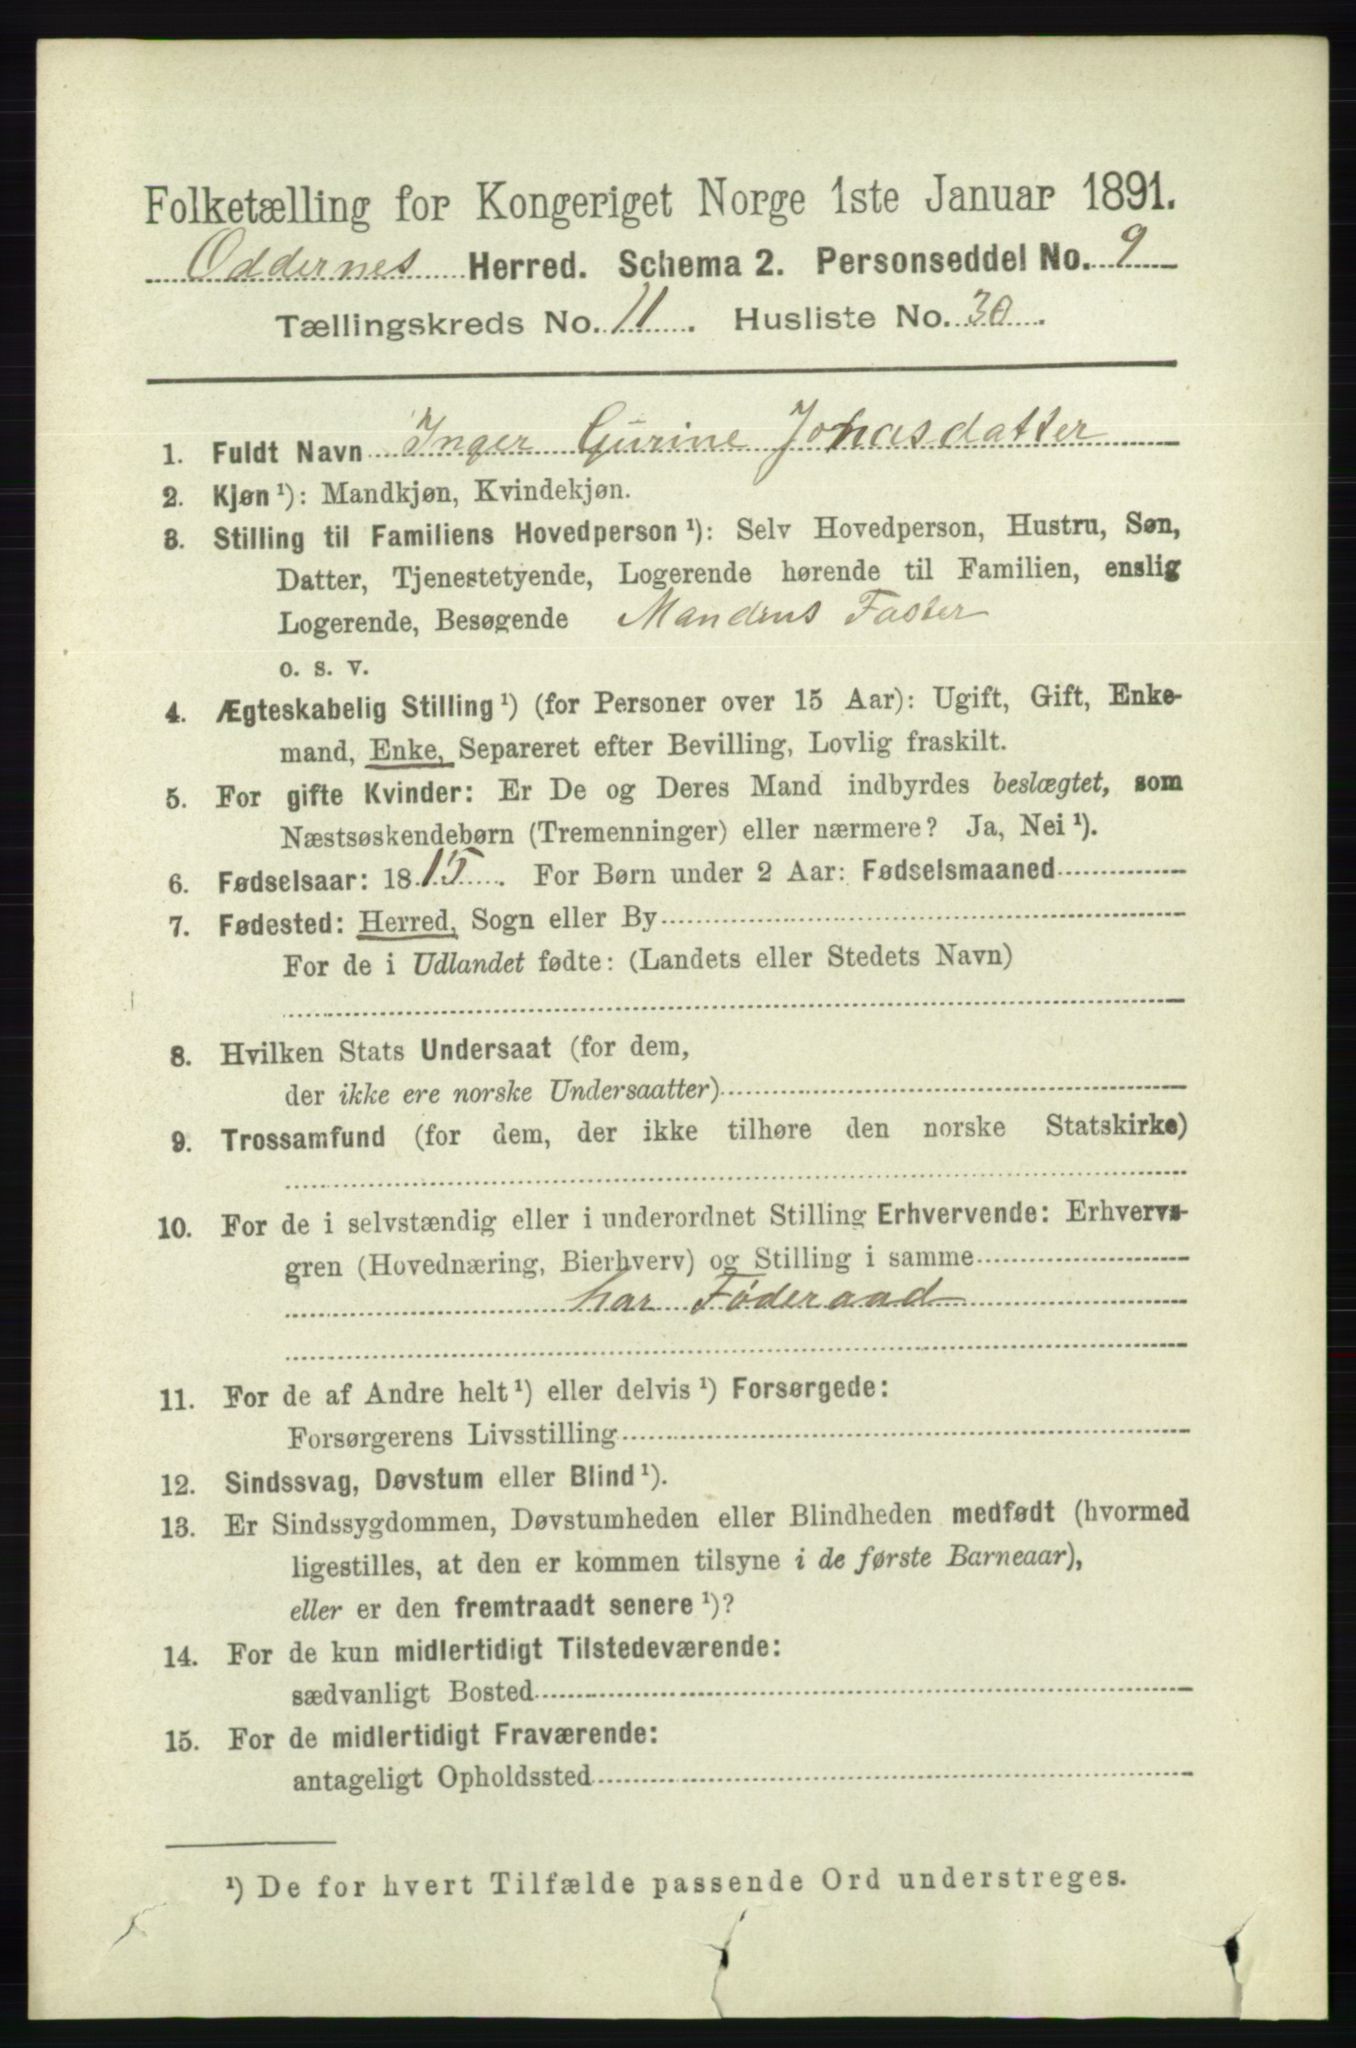 Folketælling for Kongeriget Norge 1ste Januar 1891.
Oddernes Herred. Schema 2. Personseddel No. 9
Tællingskreds No. 11. Husliste No. 30.
1. Fuldt Navn Inger Gurine Johasdatter
2. Kjøn ¹): Mandkjøn, Kvindekjøn.
3. Stilling til Familiens Hovedperson ¹): Selv Hovedperson, Hustru, Søn,
Datter, Tjenestetyende, Logerende hørende til Familien, enslig
Logerende, Besøgende Mandens Faster
o. s. v.
4. Ægteskabelig Stilling ¹) (for Personer over 15 Aar): Ugift, Gift, Enke-
mand, Enke, Separeret efter Bevilling, Lovlig fraskilt.
5. For gifte Kvinder: Er De og Deres Mand indbyrdes beslægtet, som
Næstsøskendebørn (Tremenninger) eller nærmere? Ja, Nei ¹).
6. Fødselsaar: 1815. For Børn under 2 Aar: Fødselsmaaned
7. Fødested: Herred, Sogn eller By
For de i Udlandet fødte: (Landets eller Stedets Navn)
8. Hvilken Stats Undersaat (for dem,
der ikke ere norske Undersaatter)
9. Trossamfund (for dem, der ikke tilhøre den norske Statskirke)
10. For de i selvstændig eller i underordnet Stilling Erhvervende: Erhvervs-
gren (Hovednæring, Bierhverv) og Stilling i samme
har Føderaad
11. For de af Andre helt ¹) eller delvis ¹) Forsørgede:
Forsørgerens Livsstilling
12. Sindssvag, Døvstum eller Blind ¹).
13. Er Sindssygdommen, Døvstumheden eller Blindheden medfødt (hvormed
ligestilles, at den er kommen tilsyne i de første Barneaar),
eller er den fremtraadt senere ¹)?
14. For de kun midlertidigt Tilstedeværende:
sædvanligt Bosted
15. For de midlertidigt Fraværende:
antageligt Opholdssted
¹) De for hvert Tilfælde passende Ord understreges.